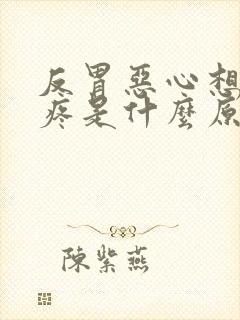 反胃惡心想
疼是什麼原
陳紫燕